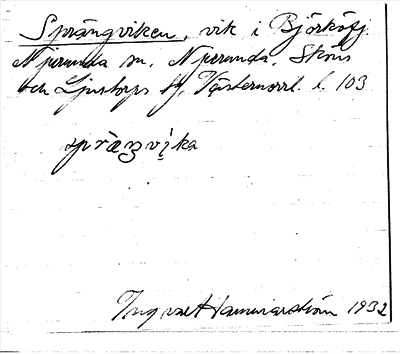 Sprängviken, vik i Björköfj.
Njurunda sn, Njurunda, Sköns
och Ljustorps tg, Västernorrl. l. 103
spräŋvika
Ingvar Hammarström 1932